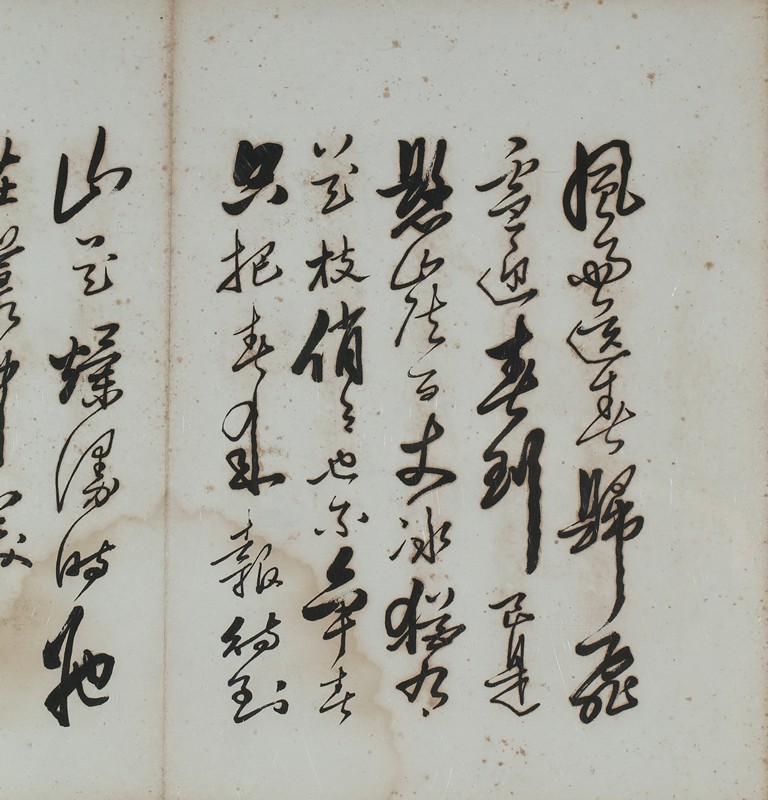 風雨送春歸飛
雪迎春到已是
懸崖百丈冰猶有
花枝俏々也不爭春
只把春來報待到
山花爛漫時她
在叢中笑